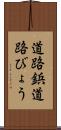 道路鋲道
路びょう